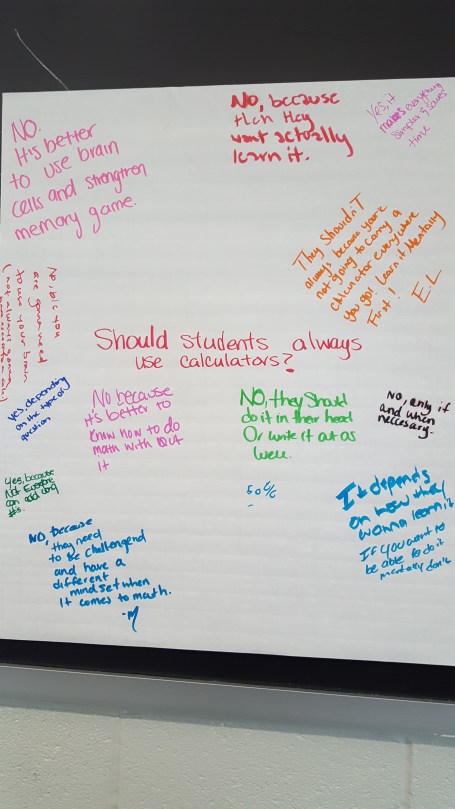 NO.
It's better
to use brain
cells and strengtren
memory game.
NO, because
then they
wont actually
learn it.
Yes, it
makes everything
simpler & saves
time
They Shouldn't
always because you're
not going to carry a
calculator everywhere
you go! Learn it Mentally
First!
E.L
No, b/c you
are
to use your brain
(not always gonna
Should students always
use calculators?
Yes, depending
on the type of
question
No because
it's better to
know how to do
math with out
it
NO, they Should
do it in their head
Or write it out as
well.
No, only if
and when
neccesary.
Yes, because
Not Everyone
can add
#s.
50%
-
It depends
on how they
wonna learn it
If you want to
be able to do it
mentally don't
NO, because
they need
to be challengend
and have a
different
mindset when
it comes to math.
-M